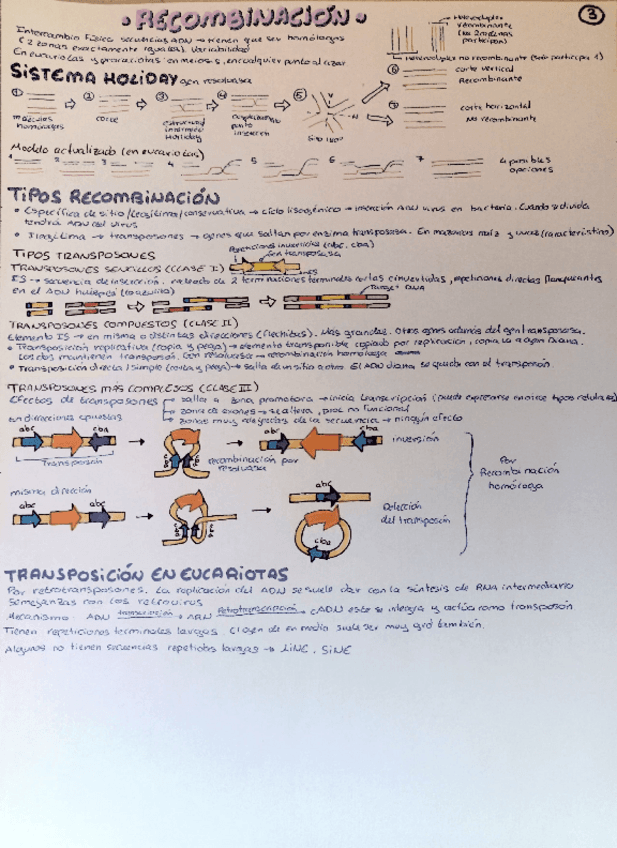 • RECOMBINACIÓN •
3
Intercambio físico secuencias ADN → tienen que ser homólogas
(2 zonas exactamente iguales) Variabilidad
En eucariotas y procariotas en meiosis, en cualquier punto al azar
Heterodúplex
recombinante
participan)
Heterodúplex no recombinante (solo participa 1)
SISTEMA HOLIDAY gen resolvasa
1 2 3 4 5
moléculas
homólogas
corte
estructura
intermedio
Holliday
punto
inserción
6 corte vertical
Recombinante
7 corte horizontal
No recombinante
Modelo actualizado (en eucariotas)
1 2 3 4 5 6 7
4 posibles
opciones
TIPOS RECOMBINACIÓN
• Específica de sitio/legítima/conservativa → ciclo lisogénico → inserción ADN virus en bacteria. Cuando se divida
tendrá ADN del virus
• Ilegítima → transposones → genes que saltan por enzima transposasa. En mazorcas maíz y uvas (característico)
TIPOS TRANSPOSONES
Repeticiones invertidas (abc, cba)
gen transposasa
TRANSPOSONES SENCILLOS (CLASE I)
IS
IS → secuencia de inserción, rodeado de 2 terminaciones terminales cortas e invertidas, repeticiones directas flanqueantes
en el ADN huésped (amarillo)
Target DNA
TRANSPOSONES COMPUESTOS (CLASE II)
Elemento IS → en misma o distintas direcciones (flechitas). Más grandes. Otros genes además del gen transposasa.
• Transposición replicativa (copia y pega) → elemento transponible copiado por replicación, copia va a gen Diana.
Los dos mantienen transposón. Con resolvasa → recombinación homóloga
• Transposición directa/simple (corta y pega) → salta de un sitio a otro. El ADN diana se queda con el transposón.
TRANSPOSONES MÁS COMPLEJOS (CLASE III)
Efectos de transposones
salta a zona promotora → inicia transcripción (puede expresarse en otros tipos celulares)
zona de exones → se altera, prot no funcional
zonas muy alejadas de la secuencia → ningún efecto
en direcciones opuestas
abc cba
Transposón
recombinación por
resolvasa
abc cba
inversión
Por
Recombinación
homóloga
misma dirección
abc abc
abc
cba
Delección
del transposón
TRANSPOSICIÓN EN EUCARIOTAS
Por retrotransposones. La replicación del ADN se suele dar con la síntesis de RNA intermediario
Semejanzas con los retrovirus
Mecanismo: ADN transcripción → ARN retrotranscripción → cADN este se integra y actúa como transposón
Tienen repeticiones terminales largas. El gen de en medio suele ser muy grd también.
Algunos no tienen secuencias repetidas largas → LINE, SINE